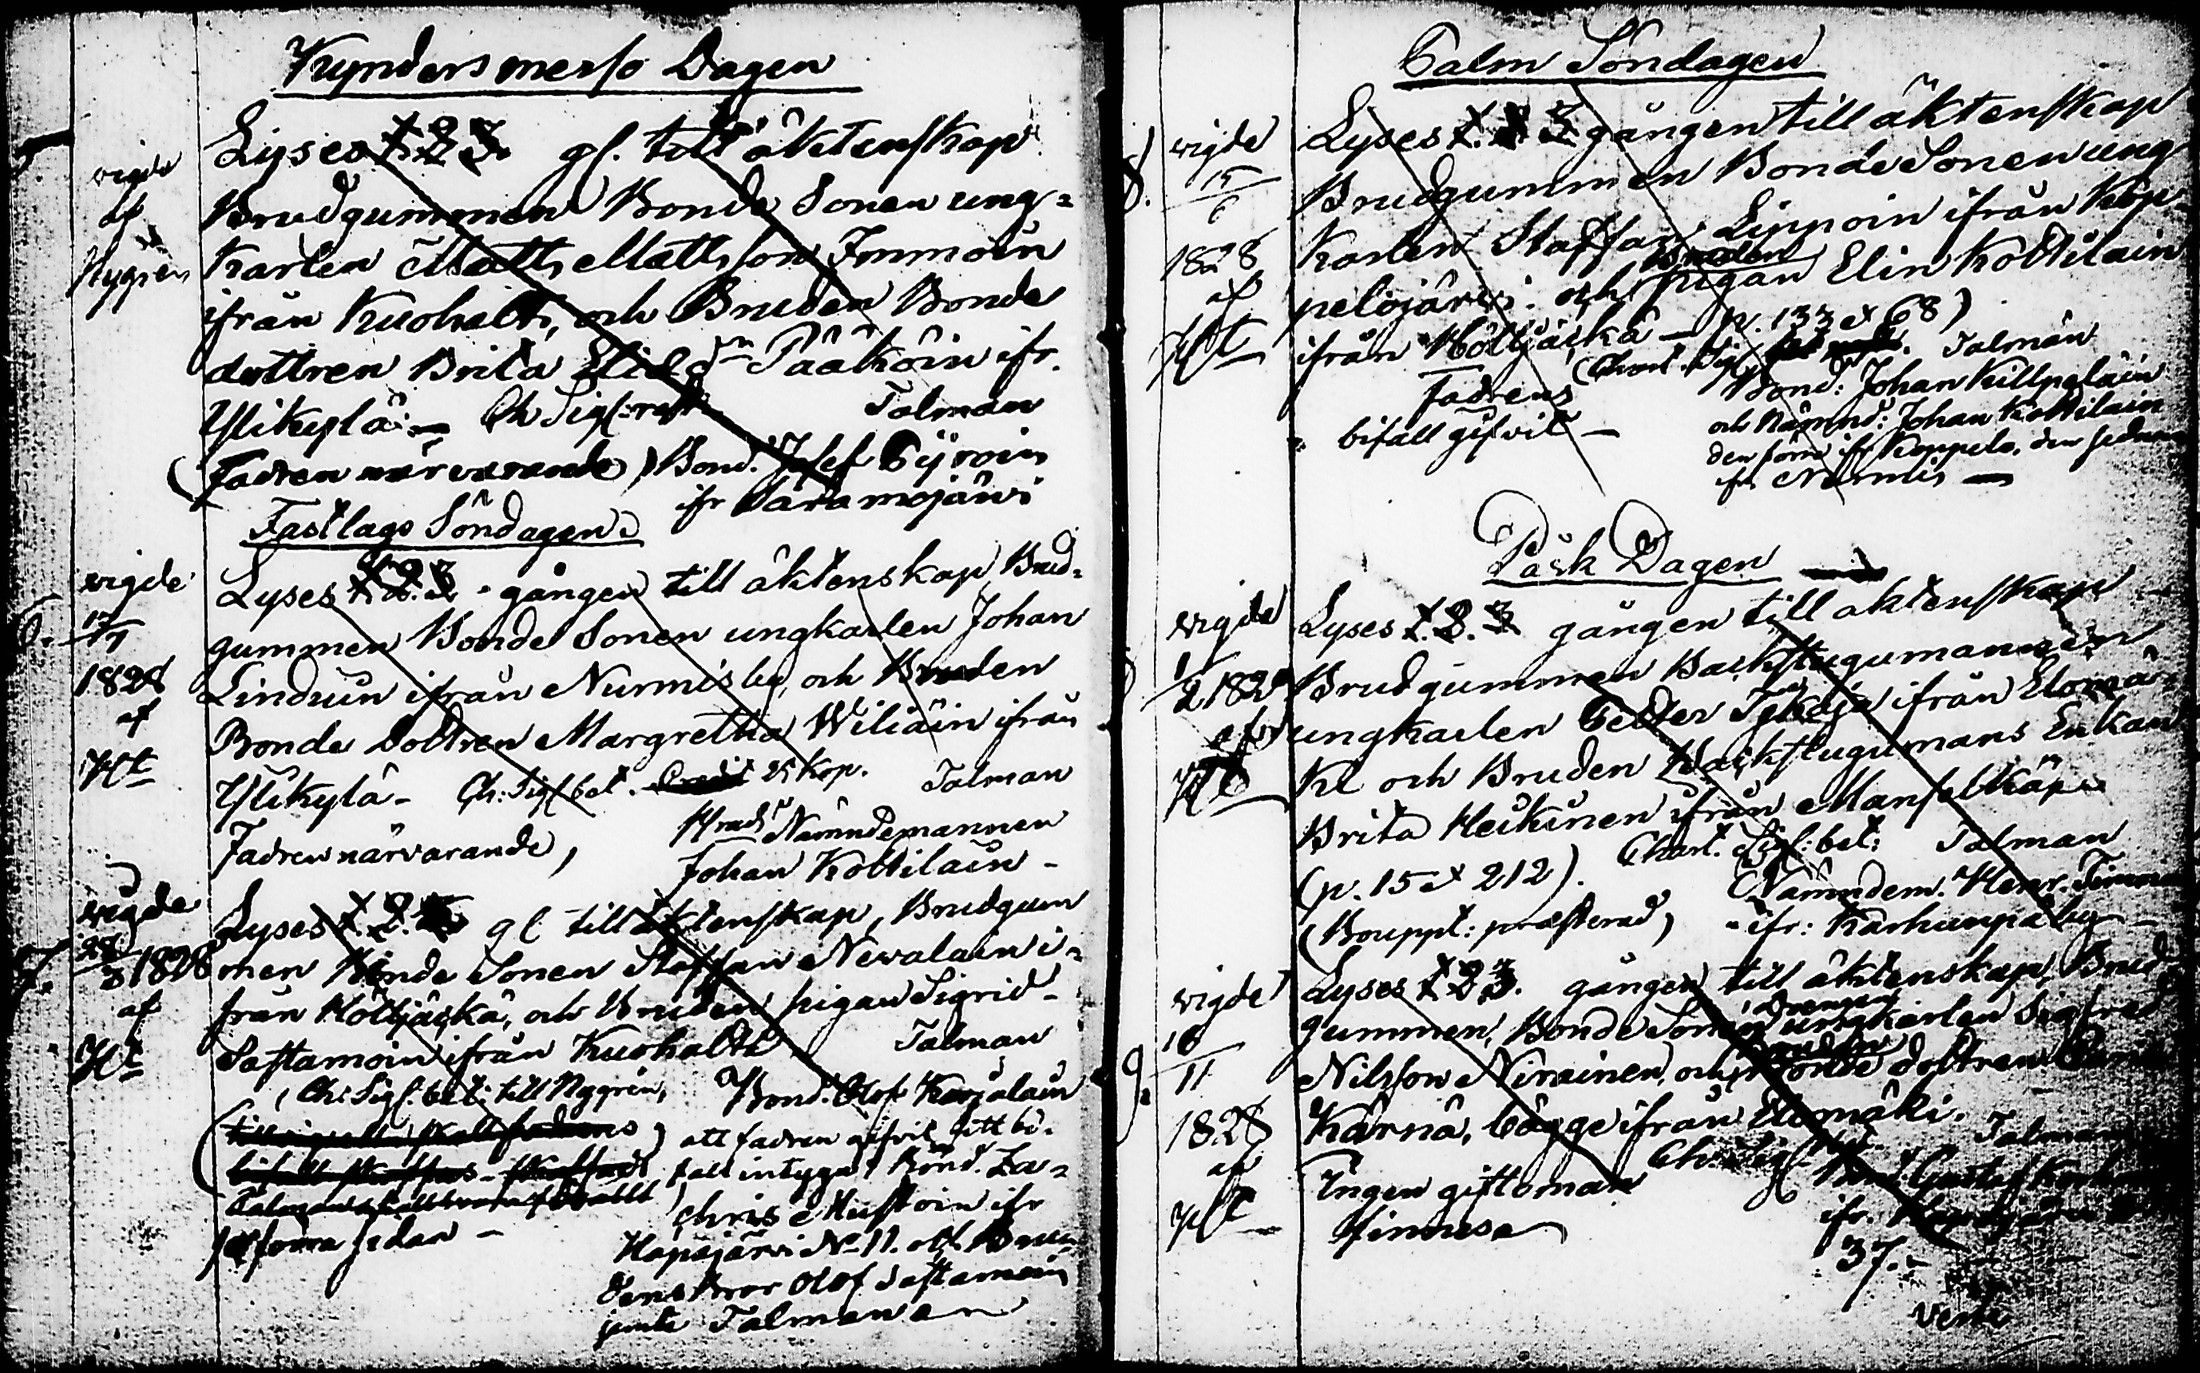 Kyndersmesso Dagen
5.
vigde
af
Nygren
Lyses 1. 2. 3. gl. till äktenskap
Brudgummen Bonde Sonen ung-
karlen Matts Mattsson Immoin
ifrån Kuohatti, och Bruden Bonde
dottren Brita Pääköin ifr.
Ylikylä. Ch. Sigf: Talman
(Fadren närvarande) Bond. Josef Pyivin
ifr Saramojärvi
Fastlags Söndagen.
6.
vigde
17
1828
af
Ht
Lyses 1. 2. 3. gången till äktenskap Brud-
gummen Bonde Sonen ungkarlen Johan
Linduin ifrån Nurmis by, och Bruden
Bonde Dottren Margretha Wiliäin ifrån
Ylikylä - Ch: Sigf bet. 25 kop. Talman
Fadren närvarande, Nämndemannen
Johan Kottilain -
7.
vigde
28/3 1828
af
Ht
Lyses 1. 2. 3. gl till äktenskap, Brudgum
men Bonde Sonen Staffan Nevalain i-
från Höljäskä, och Bruden pigan Sigrid
Sastamoin ifrån Kuohatti Talman
(Ch: Sigf. bet: till Nygren, Bond. Olof Karjalain
att fadren gifvit sitt bi-
fall intygat Bond. Za-
chris Mustoin ifr
på förra sidan -
Hapajärvi N. 11. och Bru-
dens Bror Olof Sastamoin
jemte Talmanen
Palm Söndagen
8.
vigde
15/6
1828
af
Ht
Lyses 1. 2. 3 gången till äktenskap
Brudgummen Bonde Sonen ung
Karlen Staffan Lippoin ifrån Kop
pelojärvi. och Bruden pigan Elin Kottilain
ifrån Höljäskä - (p. 133 et 68)
(Chart. Sigf. Talman
Fadrens Bond: Johan Killpeläin
bifall gifvit - och Nämnd: Johan Kottilain
den förre ifr Koppelo, den sednare
ifr. Nurmis -
Påsk Dagen
vigde
1/2 182
af
Ht
Lyses 1. 2. 3 gången till äktenskap
Brudgummen Backstugumannen
ungkarlen Petter ifrån Elomä-
ki och Bruden Backstugumans Enkan
Brita Heikinen ifrån Mansalkäp
(p. 15 et 212). Chart. Sigf: bet: Talman
(Bouppt: præsterad) Nämndem. Henr. Timmo
ifr: Karhunpä by
9.
vigde
16/11
1828
af
Ht
Lyses 1 2 3. gången till äktenskap, Brud
gummen, Bonde Sonen drängen ungkarlen Sigfred
Nilsson Nirainen, och Bruden Bonde dottren
Kärnä, bägge ifrån Elomäki.
Ch. Sigf. Talman
Ingen giftoman Bond. Gustaf
finnes ifr.
37.
Verte